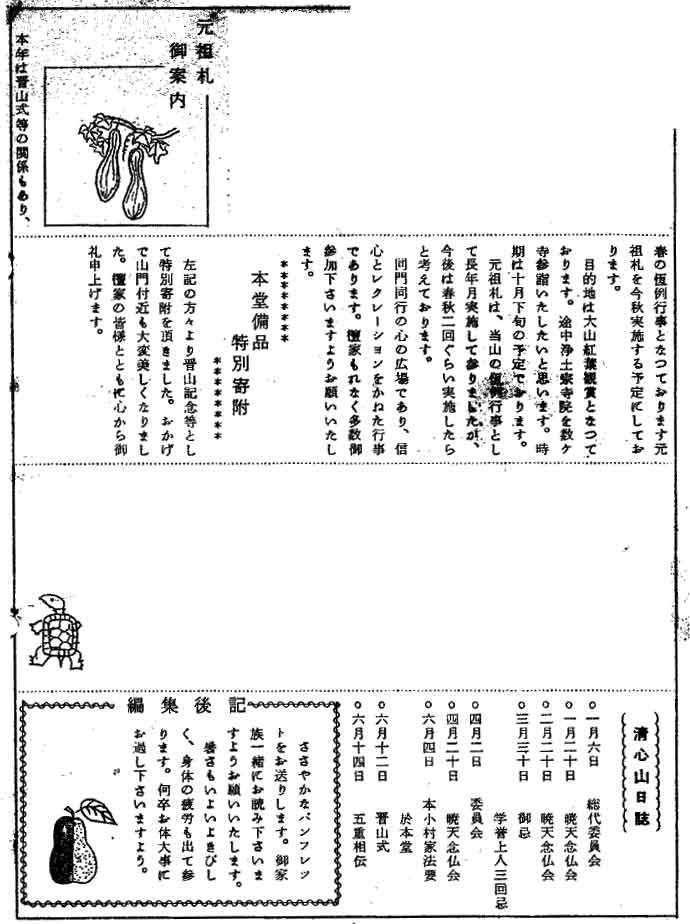 元祖札
御案内
本年は晋山式等の関係もあり、
春の恆例行事となつております元
祖札を今秋実施する予定にしてお
ります。
目的地は大山紅葉観賞となつて
おります。途中浄土宗寺院を数ケ
寺参詣いたしたいと思います。時
期は十月下旬の予定であります。
元祖札は、当山の恆例行事とし
て長年月実施して参りましたが、
今後は春秋二回ぐらい実施したら
と考えております。
同門同行の心の広場であり、信
心とレクレーションをかねた行事
であります。檀家もれなく多数御
参加下さいますようお願いいたし
ます。
*******
本堂備品
特別寄附
*******
左記の方々より晋山記念等とし
て特別寄附を頂きました。おかげ
で山門付近も大変美しくなりまし
た。檀家の皆様とともに心から御
礼申上げます。
清心山日誌
○一月六日 総代委員会
○一月二十日 暁天念仏会
○二月二十日 暁天念仏会
○三月三十日 御忌
学誉上人三回忌
○四月二日 委員会
○四月二十日 暁天念仏会
○六月四日 本小村家法要
於本堂
○六月十二日 晋山式
○六月十四日 五重相伝
編集後記
ささやかなパンフレッ
トをお送りします。御家
族一緒にお読み下さいま
すようお願いいたします。
暑さもいよいよきびし
く、身体の疲労も出て参
ります。何卒お体大事に
お過し下さいますよう。